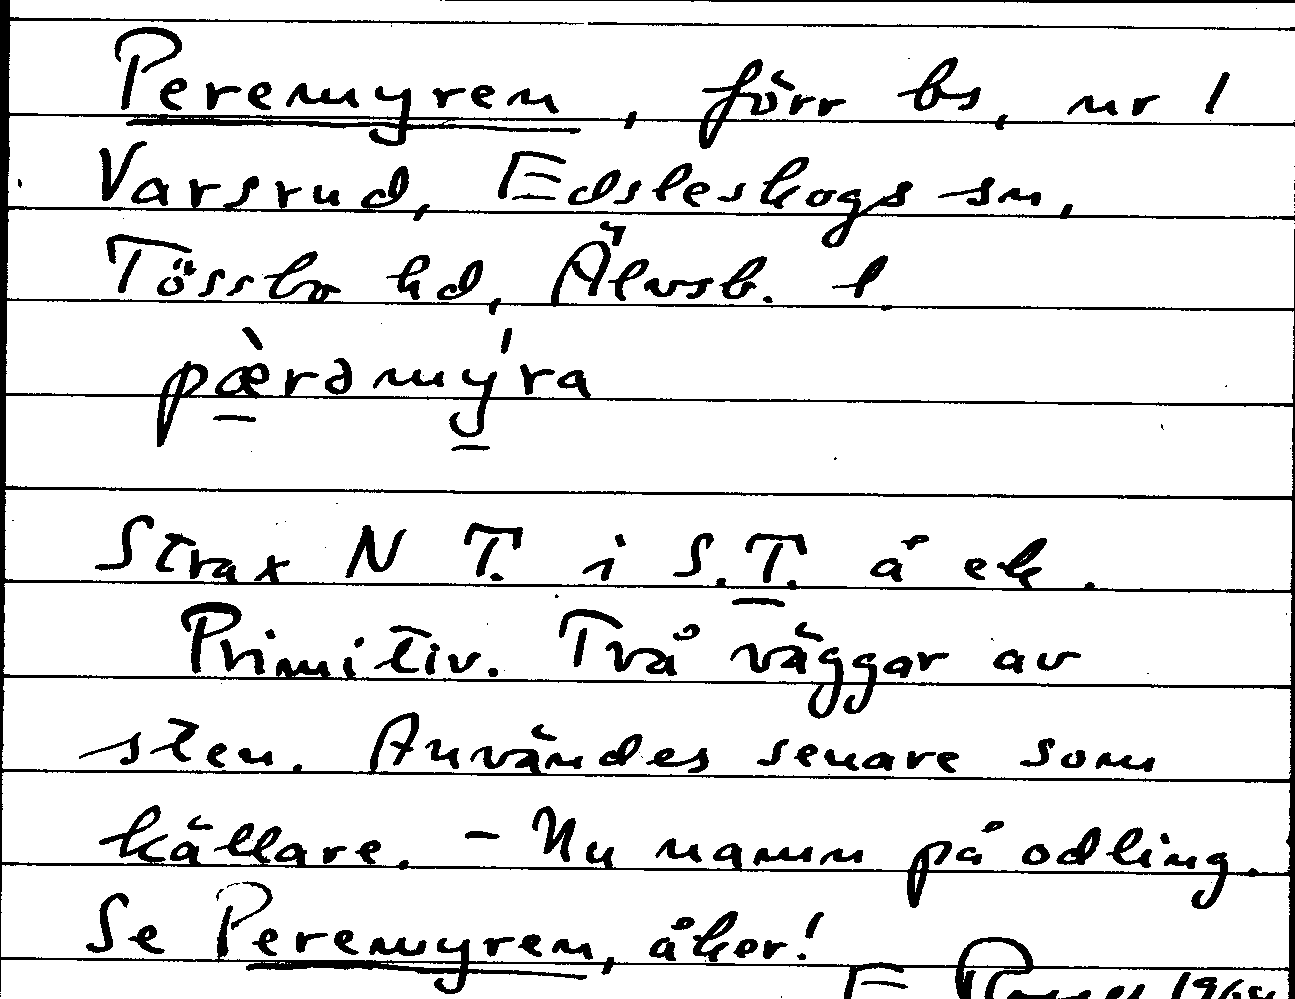 Peremyren, förr bs, nr 1
Varsrud, Edsleskogs sn,
Tössbo hd, Älvsb. l.
pæ̀rəmýra
Strax N T. i S.T. å ek.
Primitiv. Två väggar av
sten. Användes senare som
källare. - Nu namn på odling.
Se Peremyren, åker!